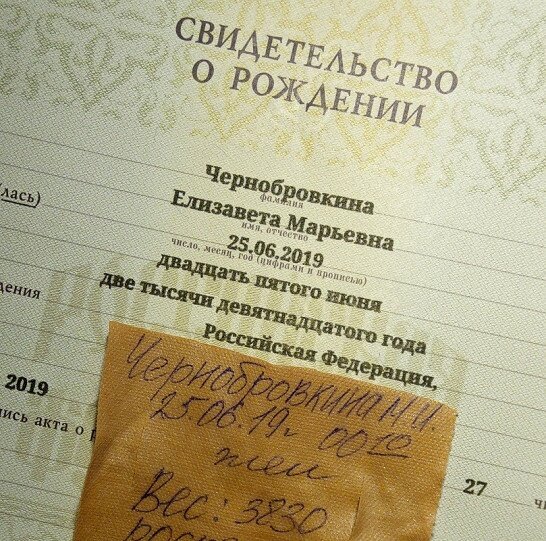 СВИДЕТЕЛЬСТВО
О РОЖДЕНИИ
Чернобровкина
фамилия
лась)
Елизавета Марьевна
имя, отчество
25.06.2019
число, месяц, год (цифрами и прописью)
двадцать пятого июня
дения
две тысячи девятнадцатого года
Российская Федерация,
2019
пись акта о
Чернобровкина М.И.
25.06.19г 00 10
жен
27
Вес: 3830